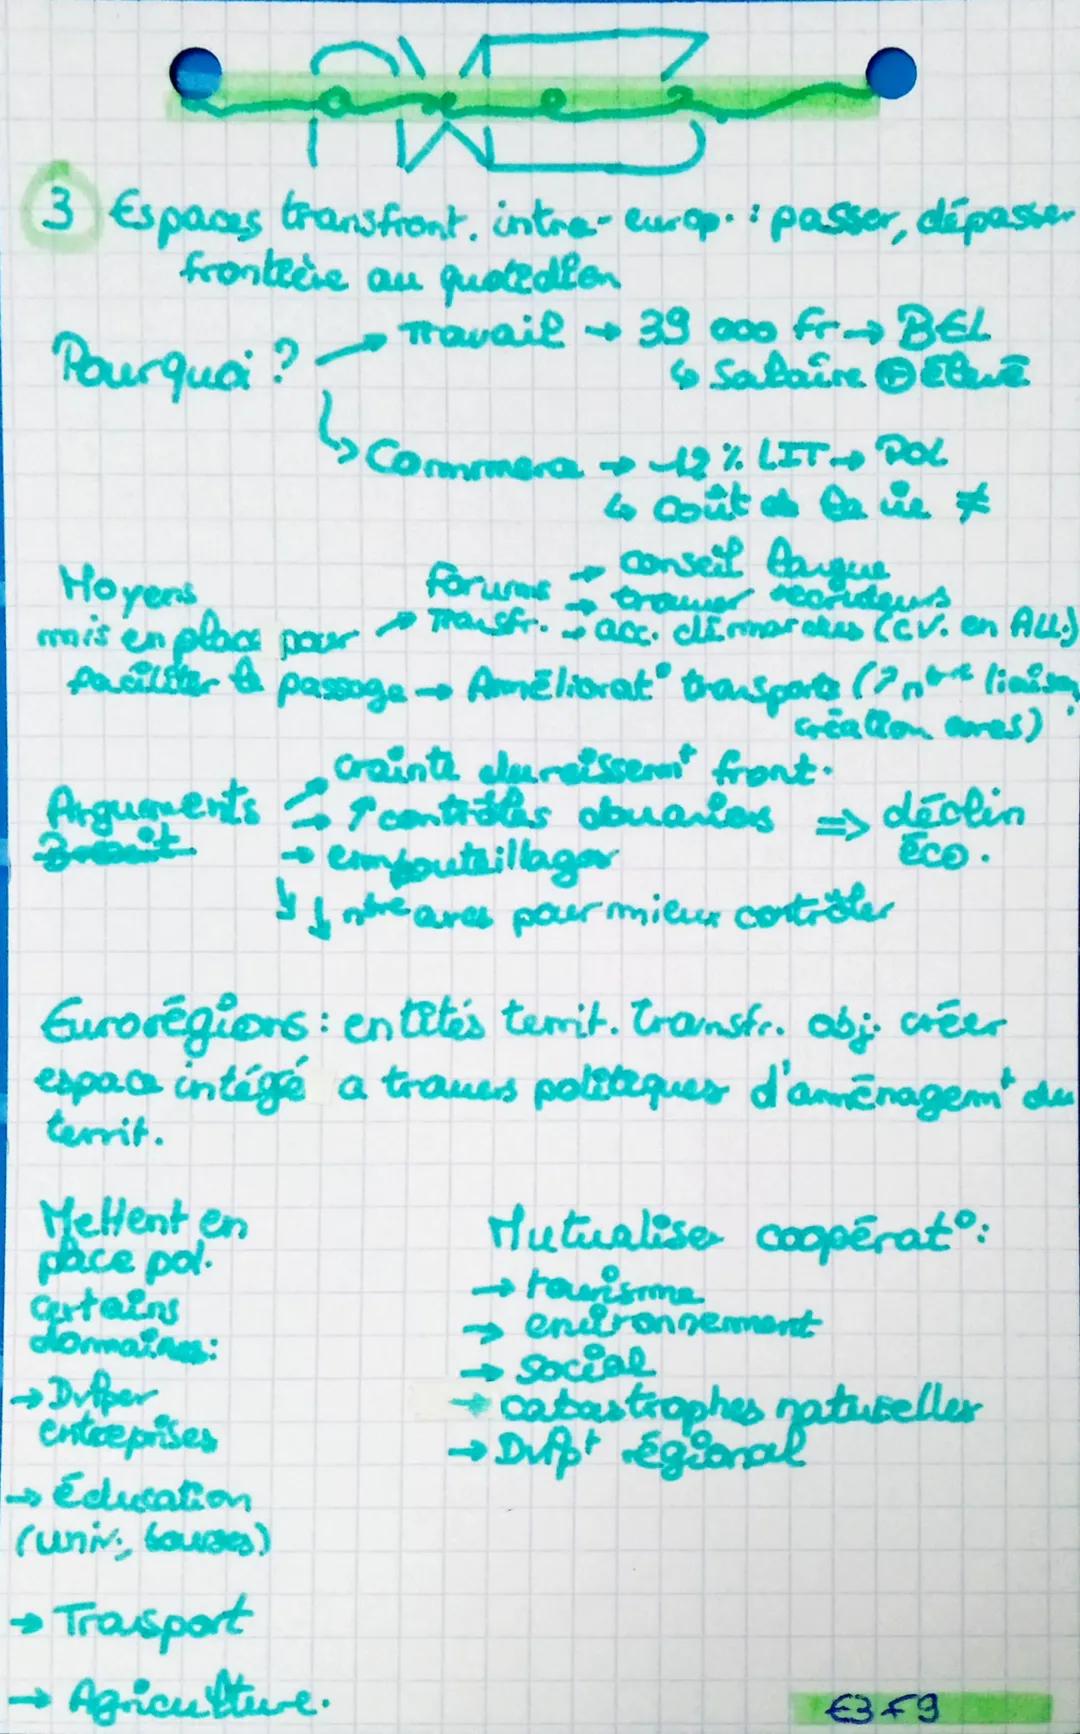 3 Espaces transfront. intra-europ. : passer, dépasser
frontière au quotidien
Pourquoi ? → Travail → 39 000 Fr → BEL
↳ Salaire ⊕ Élevé
↳ Commerce → 12 % LIT → POL
↳ Coût de la vie ≠
Moyens
mis en place pour
faciliter le passage
→ Forums Transfr.
→ conseil langue
→ trouver recruteurs
→ acc. démarches (CV. en ALL.)
→ Améliorat° transports (↗ nbre liaison,
création axes)
Arguments
Brexit
→ crainte durcissemt front.
→ ↑ contrôles douaniers ⇒ déclin
éco.
→ embouteillages
↓ nbre axes pour mieux contrôler
Eurorégions : entités territ. transfr. obj. créer
espace intégé a travers politiques d'aménagemt du
territ.
Mettent en
place pol.
certains
domaines:
→ Dvlper
entreprises
→ Éducation
(univ., bourses)
→ Transport
→ Agriculture.
Mutualise coopérat°:
→ tourisme
→ environnement
→ social
→ catastrophes naturelles
→ Dvlpt régional
€3 F9